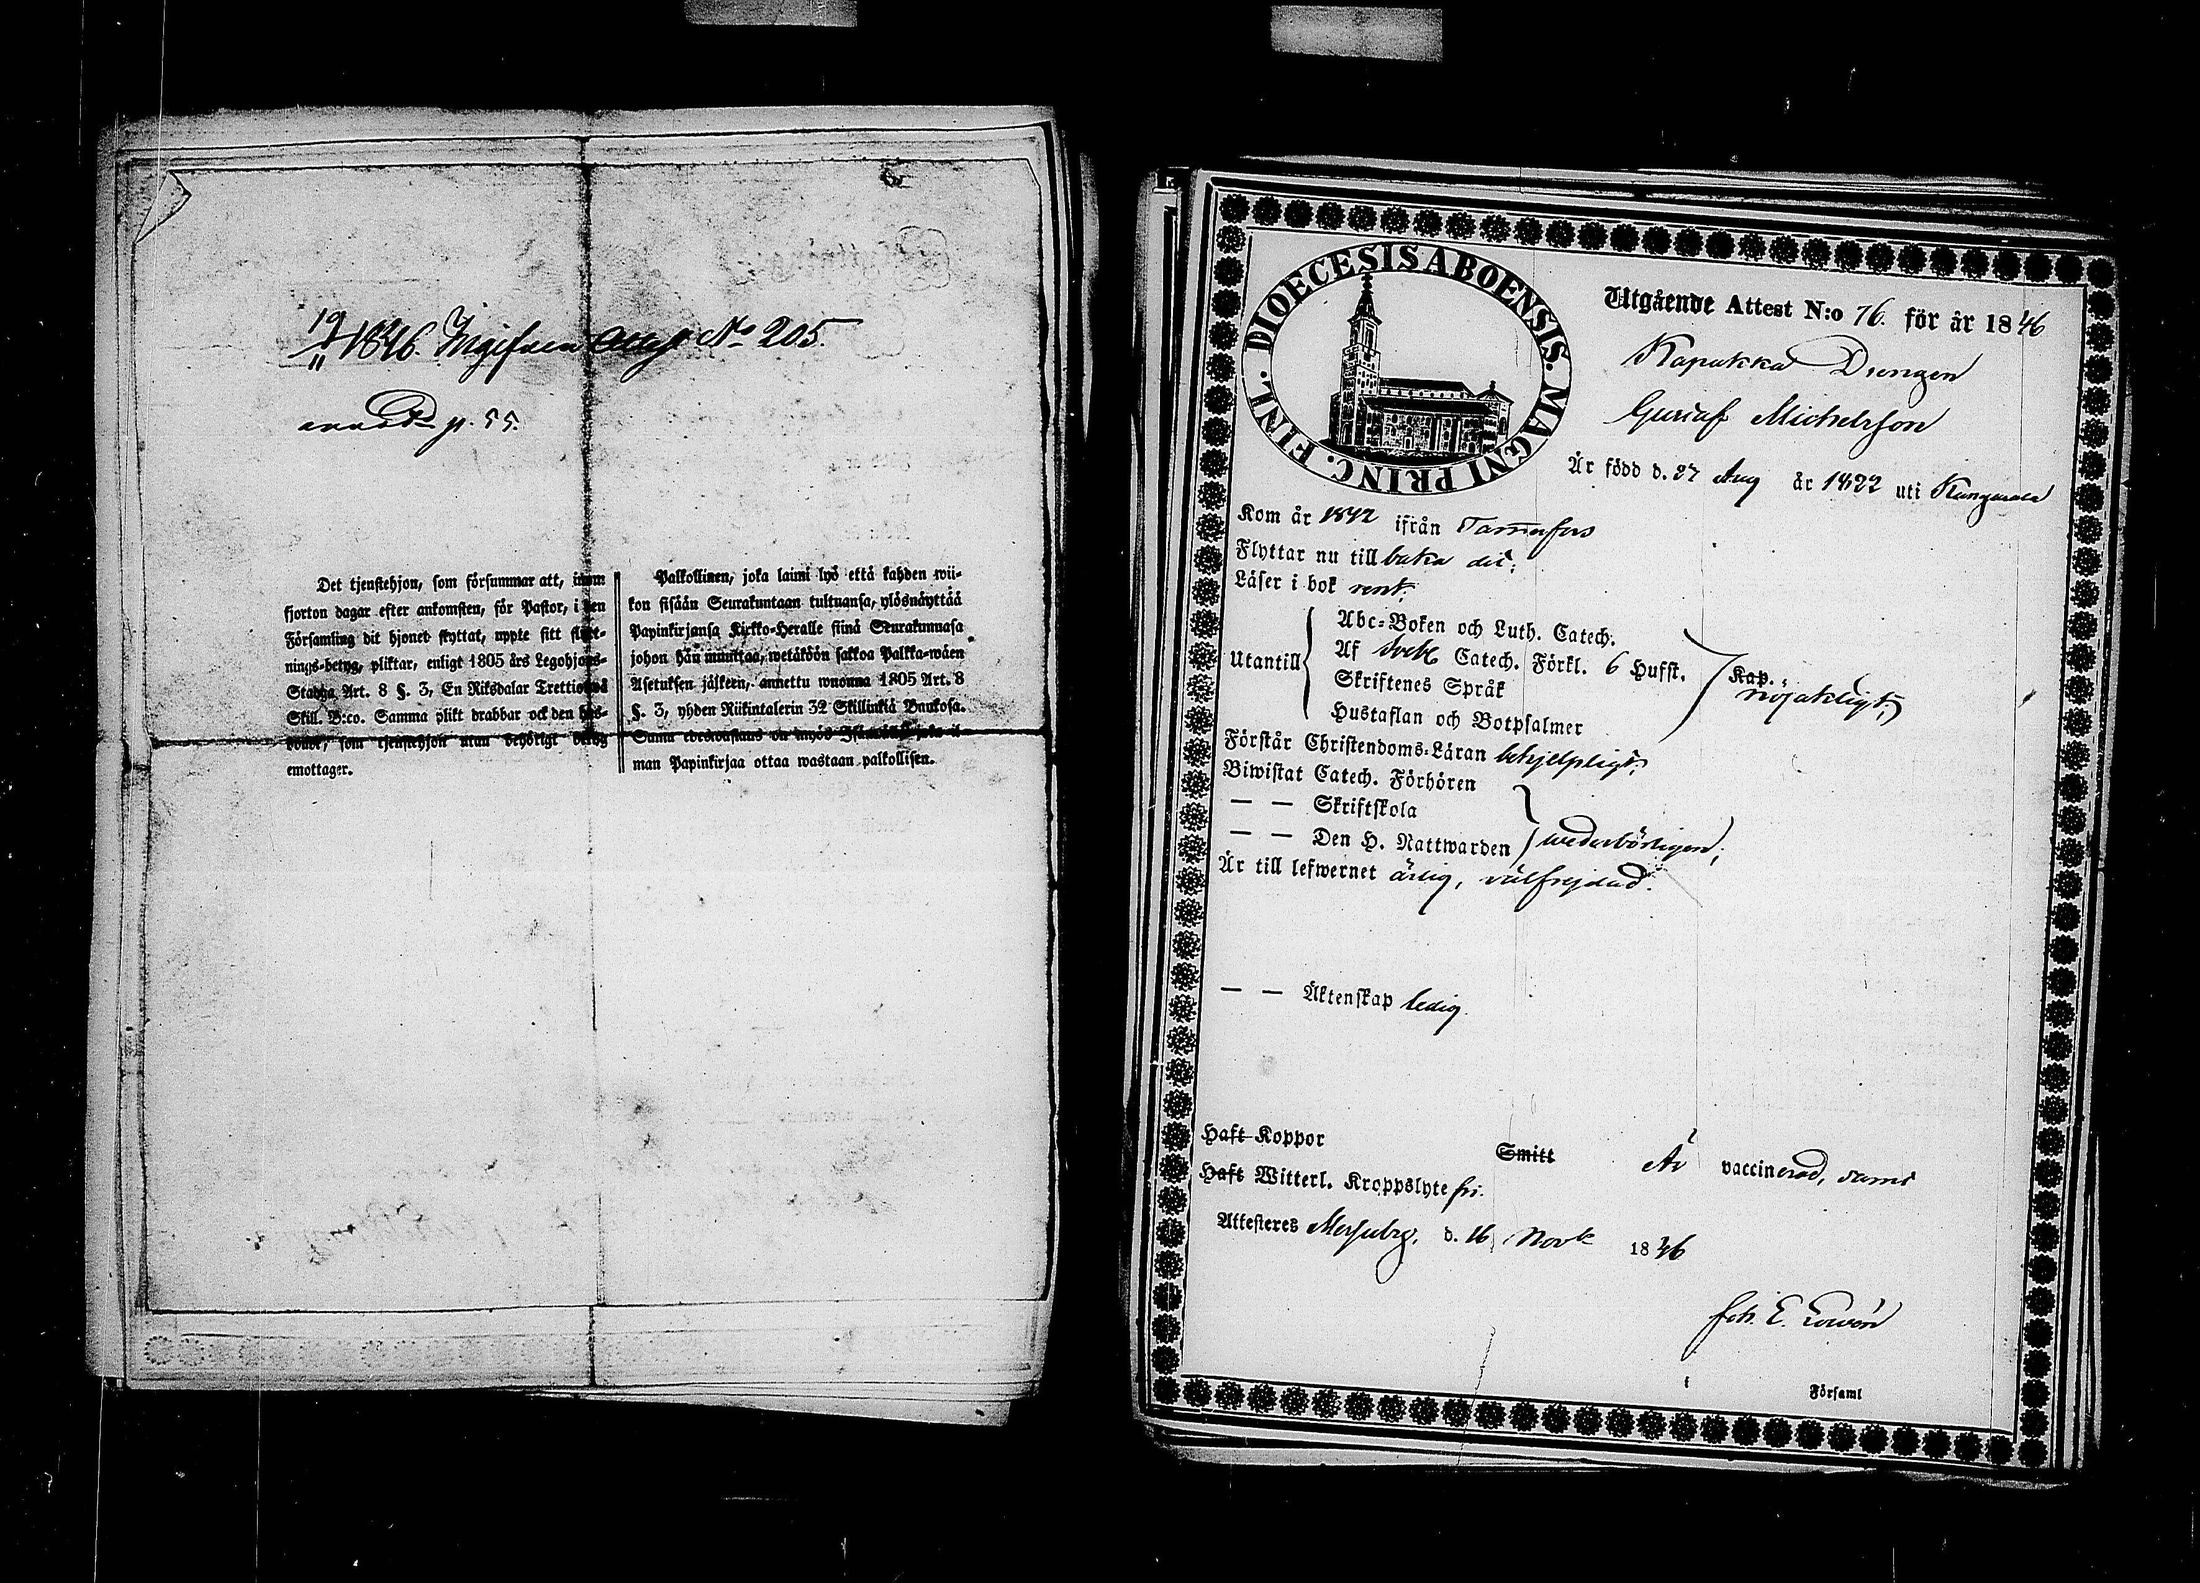 19/11 1846. Ingifven Att. No 205.
p. 55.
Det tjenstehjon, som försummar att, inom
fjorton dagar efter ankomsten, för Pastor, i den
Församling dit hjonet flyttat, uppte sitt flytt-
nings-betyg, pliktar, enligt 1805 års Legohjons-
Stadga Art. 8 §. 3, En Riksdalar Trettiotwå
Skill. B:co. Samma plikt drabbar ock den hus-
bonde, som tjenstehjon utan behörigt betyg
emottager.
Palkollinen, joka laimi lyö että kahden wii-
kon sisään Seurakuntaan tultuansa, ylösnäyttää
Papinkirjansa Kirkko-Heralle siinä Seurakunnasa
johon hän munttaa, wetäköön sakkoa Palkka-wäen
Asetuksen jälkeen, annettu wuonna 1805 Art. 8
§. 3, yhden Riikintalerin 32 Skillinkiä Bankosa.
Sama edeswastaus on myös Isännällä joka il-
man Papinkirjaa ottaa wastaan palkollisen.
DIOECESIS ABOENSIS. MAGNI PRINC. FINL.
Utgående Attest N:o 76. för år 1846
Kapakka Drengen
Gustaf Michelsson
Är född d. 27 Aug år 1822 uti Kangasala
Kom år 1842 ifrån Tammerfors
Flyttar nu till baka dit;
Läser i bok rent;
Utantill
Abc-Boken och Luth. Catech.
Af Sveb. Catech. Förkl. 6 Hufst. Kap.
Skriftenes Språk
Hustaflan och Botpsalmer
nöjaktligt;
Förstår Christendoms-Läran behjelpligt;
Biwistat Catech. Förhören
— — Skriftskola
— — Den H. Nattwarden wederbörligen;
Är till lefwernet ärlig, välfrejdad.
— — Äktenskap ledig.
Haft Koppor Smitt Är vaccinerad, samt
Haft Witterl. Kroppslyte fri.
Attesteras d. 16 Nov 1846
Joh. E.
Församl